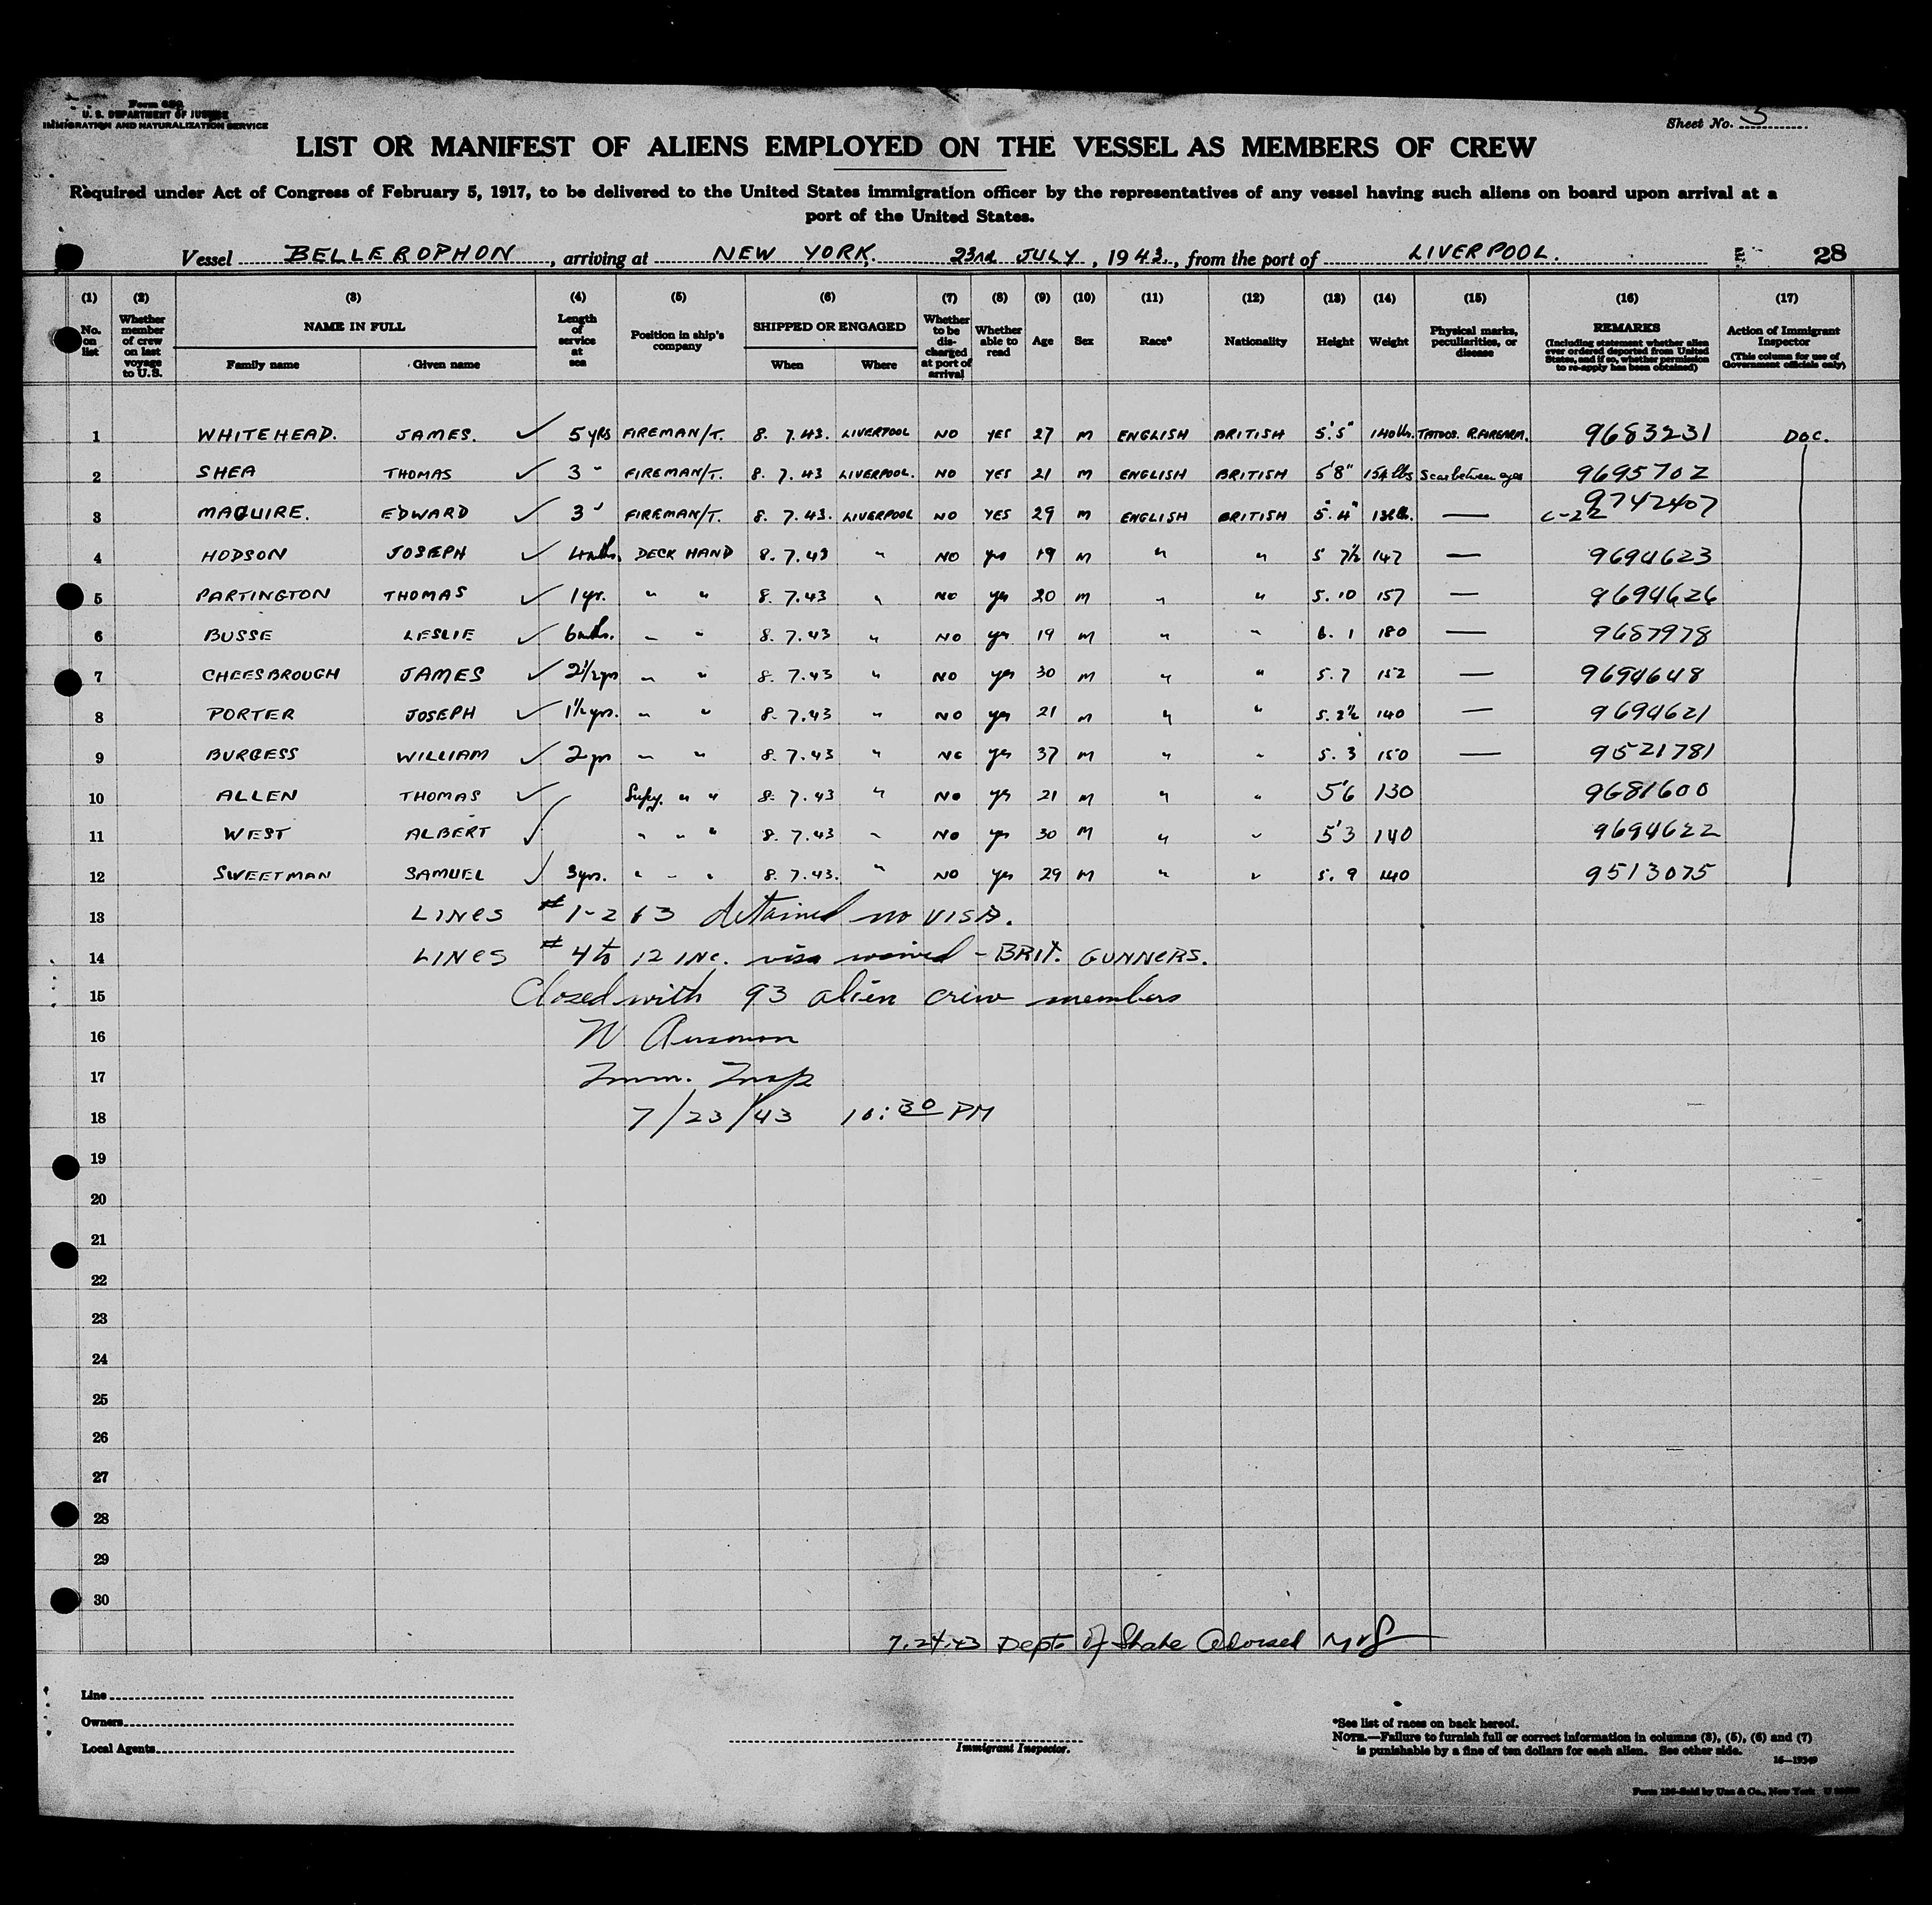 Form 680
U. S. DEPARTMENT OF JUSTICE
IMMIGRATION AND NATURALIZATION SERVICE
Sheet No. 3
LIST OR MANIFEST OF ALIENS EMPLOYED ON THE VESSEL AS MEMBERS OF CREW
Required under Act of Congress of February 5, 1917, to be delivered to the United States immigration officer by the representatives of any vessel having such aliens on board upon arrival at a
port of the United States.
Vessel BELLEROPHON, arriving at NEW YORK, 23rd JULY, 1943, from the port of LIVERPOOL. 28
(1) (2) (3) (4) (5) (6) (7) (8) (9) (10) (11) (12) (13) (14) (15) (16) (17)
No. on list
Whether member of crew on last voyage to U.S.
NAME IN FULL
Family name Given name
Length of service at sea
Position in ship's company
SHIPPED OR ENGAGED
When Where
Whether to be discharged at port of arrival
Whether able to read
Age
Sex
Race*
Nationality
Height
Weight
Physical marks, peculiarities, or disease
REMARKS
(Including statement whether alien ever ordered deported from United States, and if so, whether permission to re-apply has been obtained)
Action of Immigrant Inspector
(This column for use of Government officials only)
1 WHITEHEAD. JAMES. ✓ 5 YRS FIREMAN/T. 8. 7.43. LIVERPOOL NO YES 27 M ENGLISH BRITISH 5'.5" 140 lbs. TATOOS. R.FOREARM. 9683231 DOC.
2 SHEA THOMAS ✓ 3 " FIREMAN/T. 8. 7. 43 LIVERPOOL. NO YES 21 M ENGLISH BRITISH 5'8" 154 lbs Scar between eyes 9695702
3 MAQUIRE. EDWARD ✓ 3 " FIREMAN/T. 8. 7. 43. LIVERPOOL NO YES 29 M ENGLISH BRITISH 5'.4" — C-22 9742407
4 HODSON JOSEPH ✓ 4 mths. DECK HAND 8. 7. 43 " NO yes 19 M " " 5 7½ 147 — 9694623
5 PARTINGTON THOMAS ✓ 1 yr. " " 8. 7.43 " NO yes 20 M " " 5. 10 157 — 9694626
6 BUSSE LESLIE ✓ 6 mths. " " 8. 7.43 " NO yes 19 M " " 6. 1 180 — 9687978
7 CHEESBROUGH JAMES ✓ 2½ yrs " " 8. 7.43 " NO yes 30 M " " 5. 7 152 — 9694648
8 PORTER JOSEPH ✓ 1½ yrs. " " 8. 7.43 " NO yes 21 M " " 5. 2½ 140 — 9694621
9 BURGESS WILLIAM ✓ 2 yrs " " 8. 7.43 " NO yes 37 M " " 5. 3 150 — 9521781
10 ALLEN THOMAS ✓ " " 8. 7.43 " NO yes 21 M " " 5'6 130 9681600
11 WEST ALBERT ✓ " " " 8. 7.43 " NO yes 30 M " " 5'3 140 9694622
12 SWEETMAN SAMUEL ✓ 3 yrs. " " " 8. 7.43. " NO yes 29 M " " 5. 9 140 9513075
13 LINES # 1-2 & 3 detained no VISA.
14 LINES # 4 to 12 INC. visa waived - BRIT. GUNNERS.
15 Closed with 93 alien crew members
16
17 Imm. Insp
18 7/23/43 10:30 PM
19
20
21
22
23
24
25
26
27
28
29
30
7.24.43 Dept of State
Line
Owners
Local Agents
Immigrant Inspector.
*See list of races on back hereof.
NOTE.—Failure to furnish full or correct information in columns (3), (5), (6) and (7)
is punishable by a fine of ten dollars for each alien. See other side.
16—19349